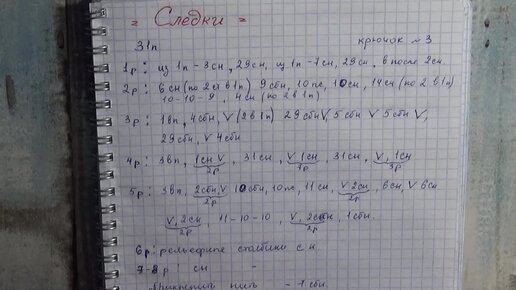 = Следки =
31п крючок №3
1р: из 1п – 3сн, 29сн, из 1п – 7сн, 29сн, в после 2сн.
2р: 6сн (по 2 в 1п) 9сбн, 10пс, 10сн, 14сн (по 2 в 1п)
10-10-9, 4сн (по 2 в 1п)
3р: 1вп, 4сбн, V (2 в 1п) 29сбн V, 5сбн V 5сбн V,
29сбн, V 4сбн
4р: 3вп, 1сн V, 31сн, V 1сн, 31сн, V, 1сн
2р 7р 3р
5р: 3вп, 2сбн, V 10сбн, 10пс, 11сн, V 2сн, 6сн, V 6сн
2р 2р
V, 2сн, 11-10-10, V, 2сбн, 1сбн.
2р 2р
6р: рельефные столбики с н.
7-8р: сн –"–
нить – 1сбн.